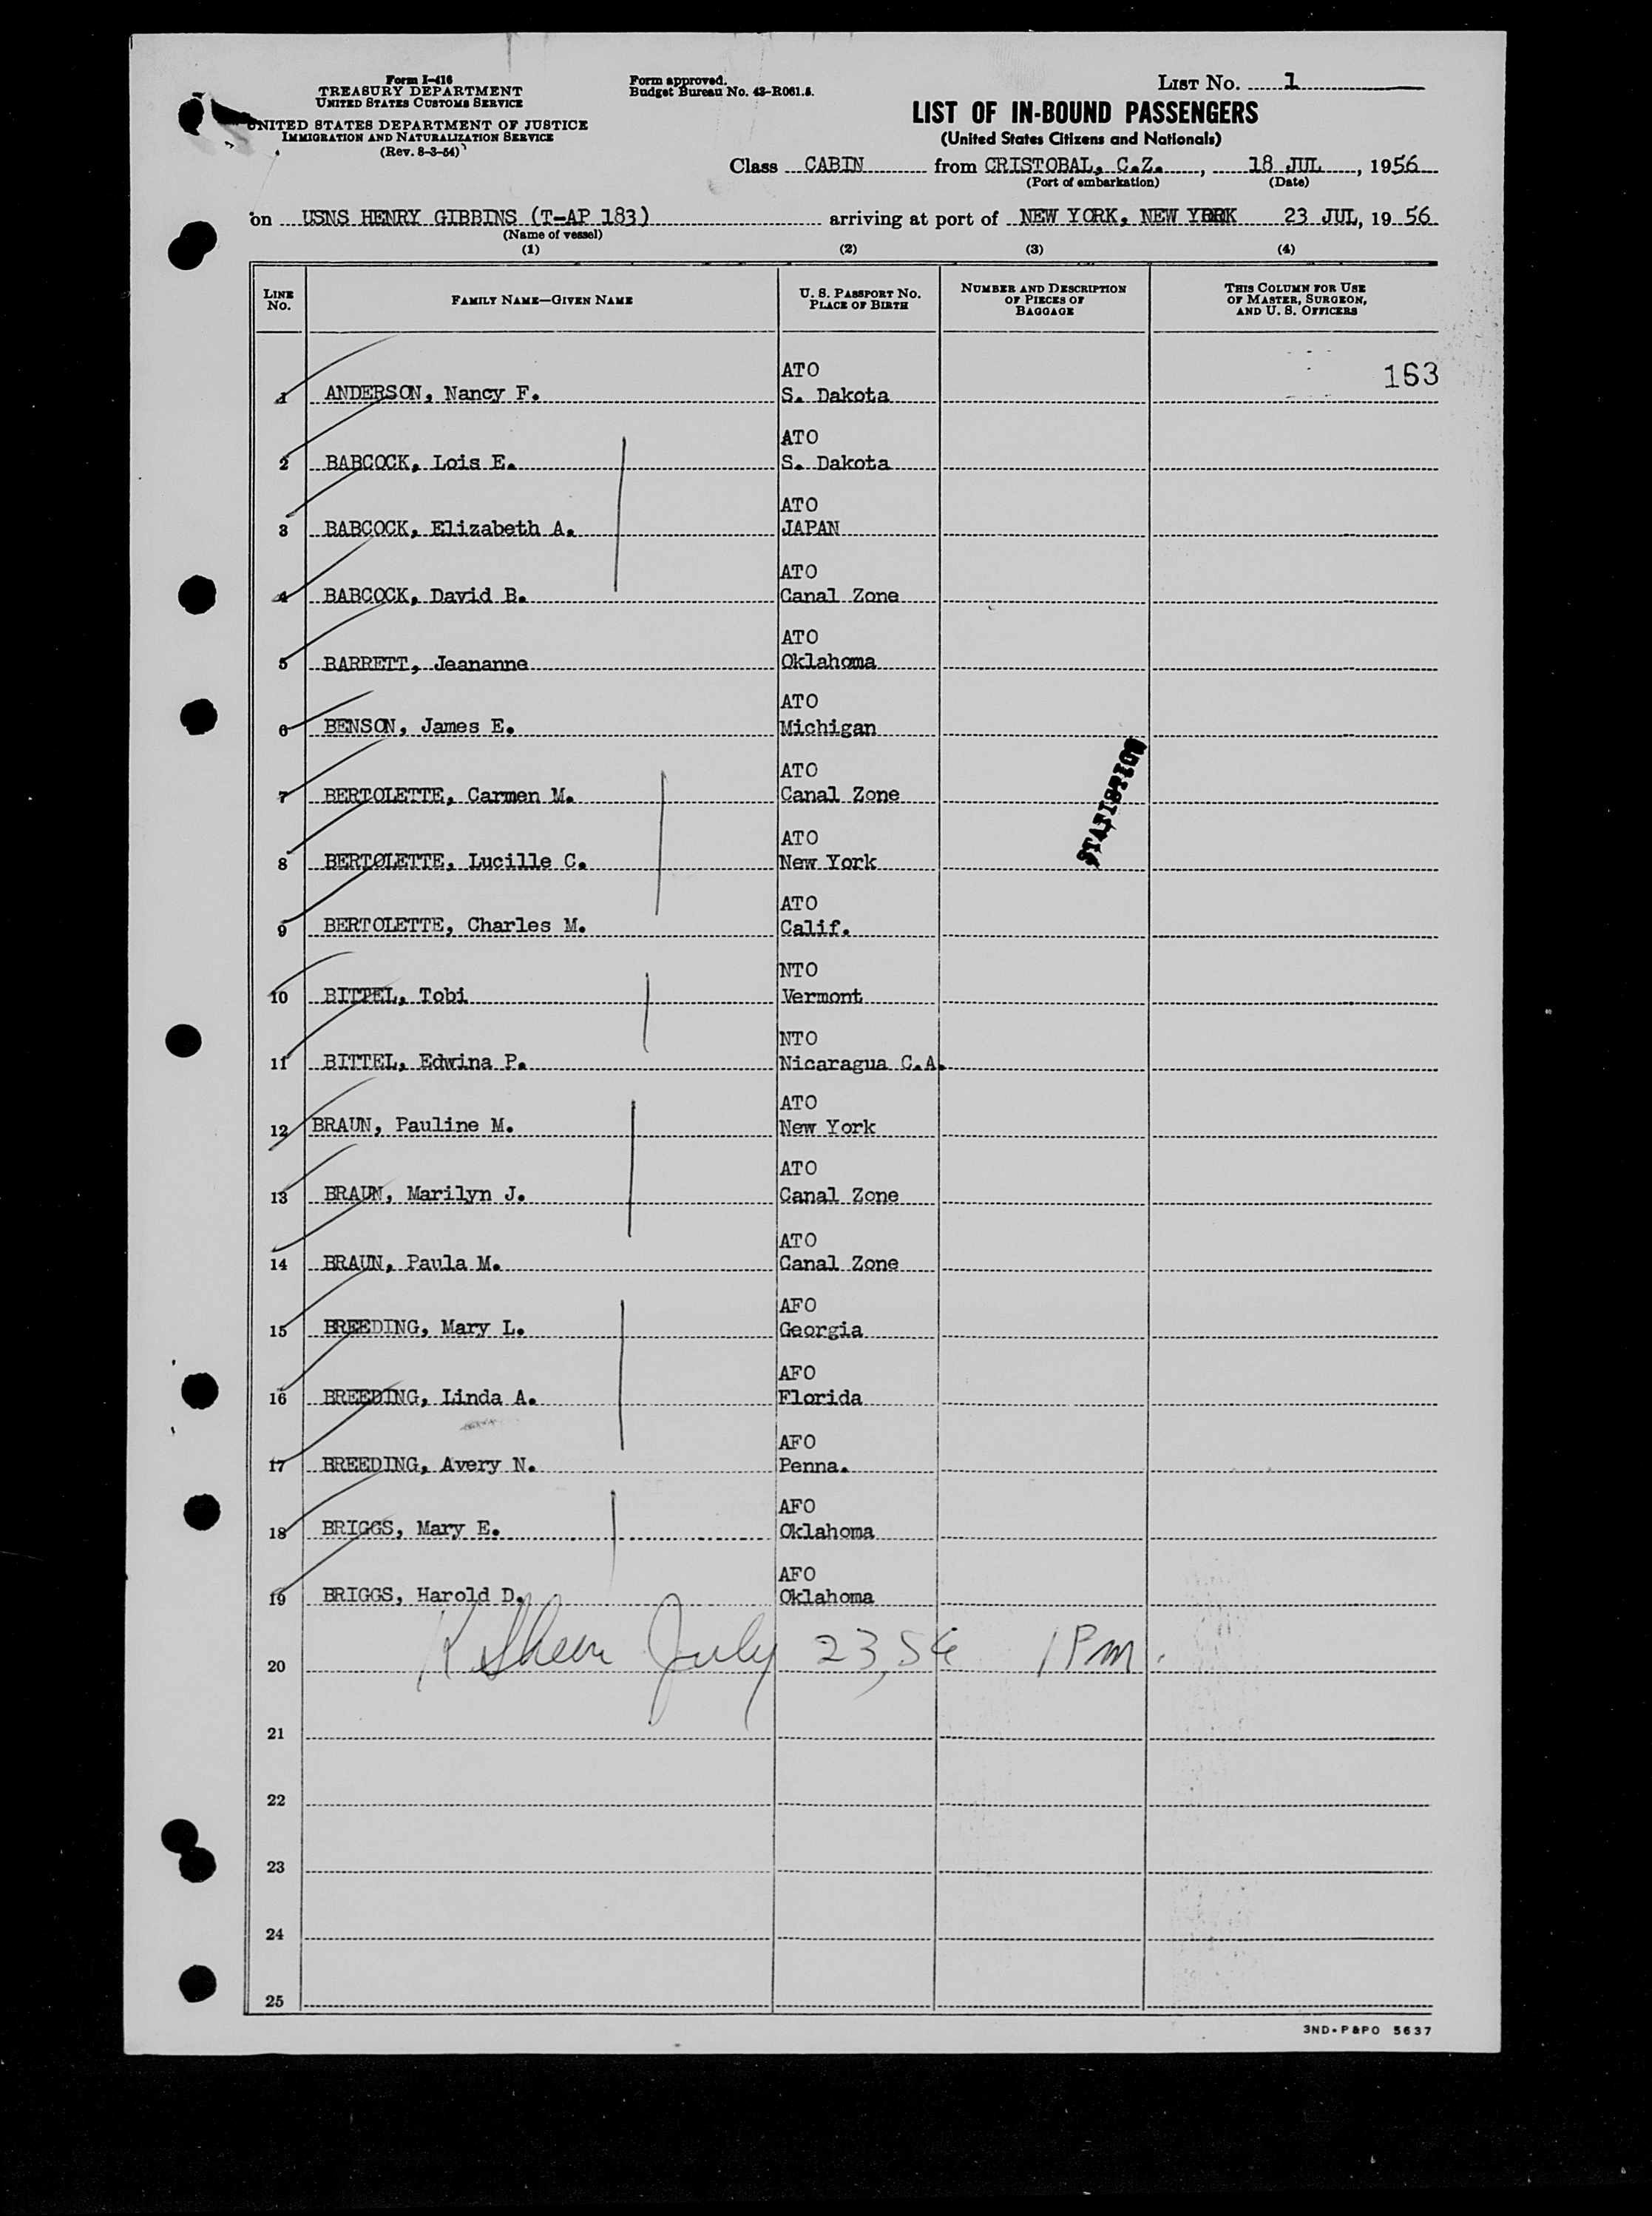 Form I-416
TREASURY DEPARTMENT
UNITED STATES CUSTOMS SERVICE
UNITED STATES DEPARTMENT OF JUSTICE
IMMIGRATION AND NATURALIZATION SERVICE
(Rev. 8-3-54)
Form approved.
Budget Bureau No. 43-R061.5.
LIST No. 1
LIST OF IN-BOUND PASSENGERS
(United States Citizens and Nationals)
Class CABIN from CRISTOBAL, C.Z., 18 JUL, 1956
(Port of embarkation) (Date)
on USNS HENRY GIBBINS (T-AP 183) arriving at port of NEW YORK, NEW YORK 23 JUL, 19 56
(Name of vessel)
(1) (2) (3) (4)
LINE No. FAMILY NAME—GIVEN NAME U. S. PASSPORT NO. PLACE OF BIRTH NUMBER AND DESCRIPTION OF PIECES OF BAGGAGE THIS COLUMN FOR USE OF MASTER, SURGEON, AND U. S. OFFICERS
ATO 163
1 ANDERSON, Nancy F. S. Dakota
ATO
2 BABCOCK, Lois E. S. Dakota
ATO
3 BABCOCK, Elizabeth A. JAPAN
ATO
4 BABCOCK, David B. Canal Zone
ATO
5 BARRETT, Jeananne Oklahoma
ATO
6 BENSON, James E. Michigan
ATO
7 BERTOLETTE, Carmen M. Canal Zone
ATO
8 BERTOLETTE, Lucille C. New York
ATO
9 BERTOLETTE, Charles M. Calif.
NTO
10 BITTEL, Tobi Vermont
NTO
11 BITTEL, Edwina P. Nicaragua C.A.
ATO
12 BRAUN, Pauline M. New York
ATO
13 BRAUN, Marilyn J. Canal Zone
ATO
14 BRAUN, Paula M. Canal Zone
AFO
15 BREEDING, Mary L. Georgia
AFO
16 BREEDING, Linda A. Florida
AFO
17 BREEDING, Avery N. Penna.
AFO
18 BRIGGS, Mary E. Oklahoma
AFO
19 BRIGGS, Harold D. Oklahoma
20 July 23, 1 Pm.
21
22
23
24
25
3ND-P&PO 5637